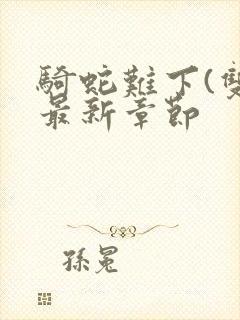 騎蛇難下(雙
最新章節
孫冕